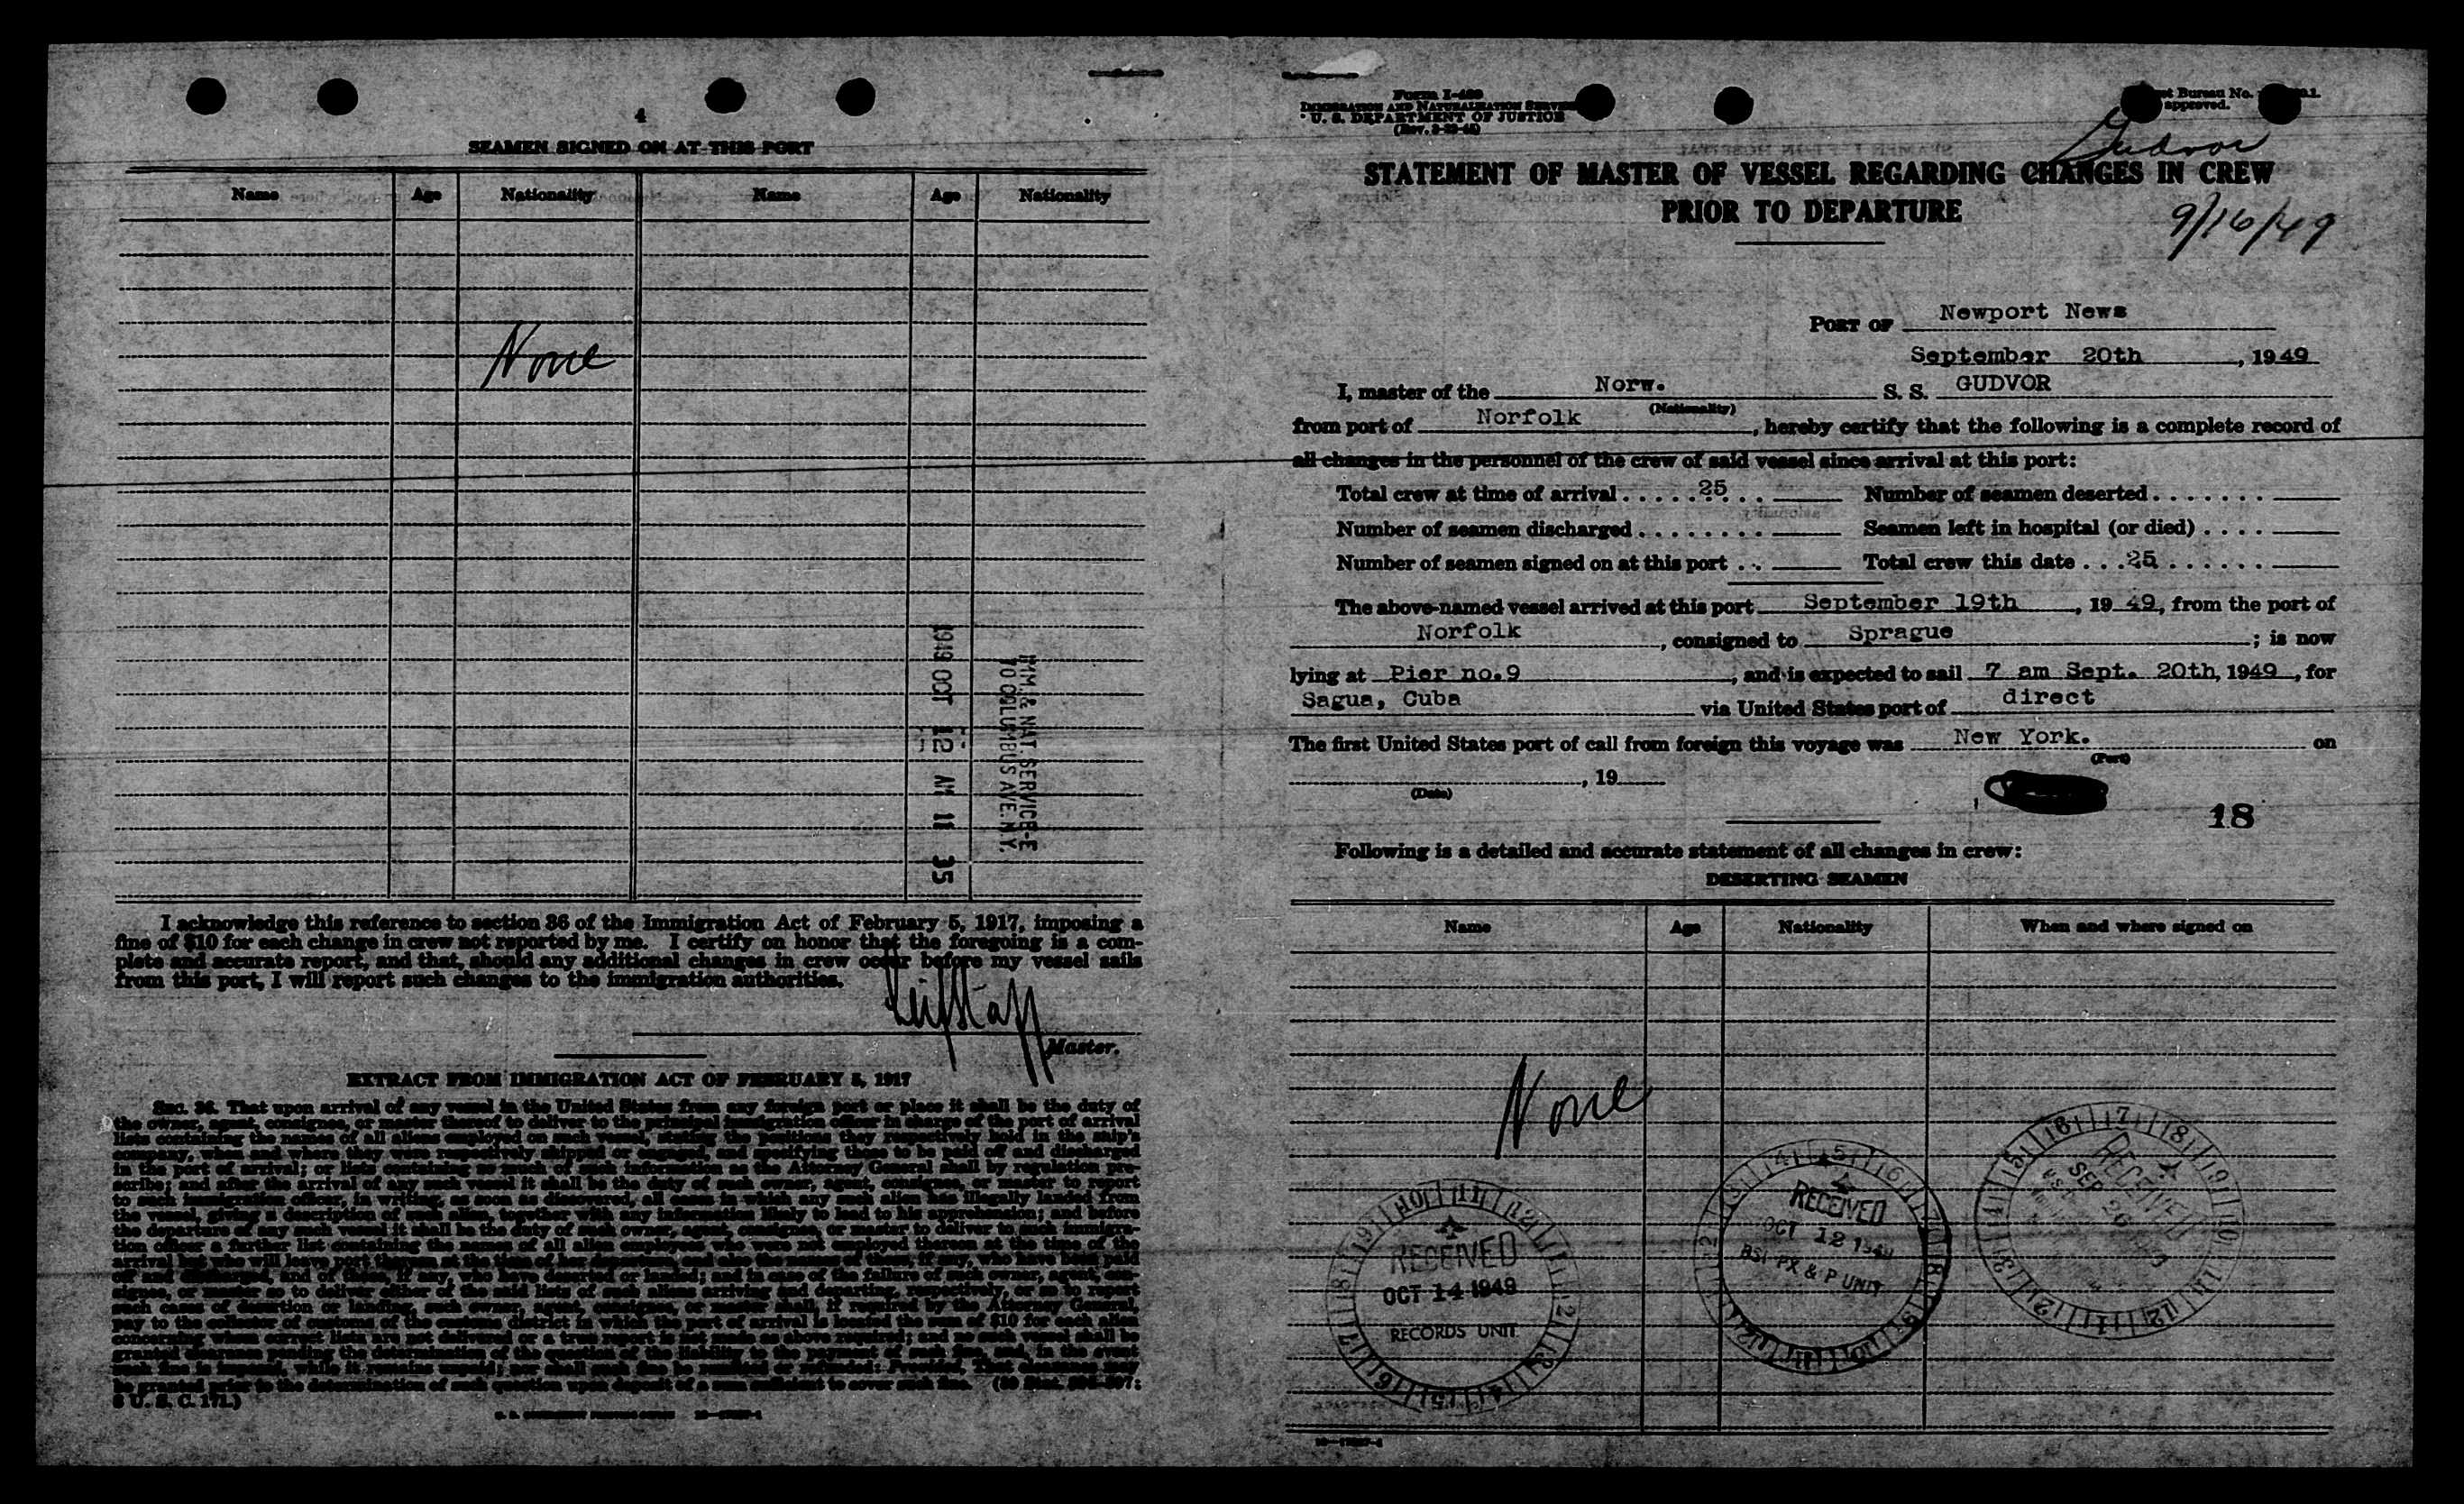 4
SEAMEN SIGNED ON AT THIS PORT
Name Age Nationality Name Age Nationality
None
1949 OCT 12 AM 11 35
IMM. & NAT. SERVICE-E
70 COLUMBUS AVE. N.Y.
I acknowledge this reference to section 36 of the Immigration Act of February 5, 1917, imposing a
fine of $10 for each change in crew not reported by me. I certify on honor that the foregoing is a com-
plete and accurate report, and that, should any additional changes in crew occur before my vessel sails
from this port, I will report such changes to the immigration authorities.
Master.
EXTRACT FROM IMMIGRATION ACT OF FEBRUARY 5, 1917
SEC. 36. That upon arrival of any vessel in the United States from any foreign port or place it shall be the duty of
the owner, agent, consignee, or master thereof to deliver to the principal immigration officer in charge of the port of arrival
lists containing the names of all aliens employed on such vessel, stating the positions they respectively hold in the ship's
company, when and where they were respectively shipped or engaged, and specifying those to be paid off and discharged
in the port of arrival; or lists containing so much of such information as the Attorney General shall by regulation pre-
scribe; and after the arrival of any such vessel it shall be the duty of such owner, agent, consignee, or master to report
to such immigration officer, in writing, as soon as discovered, all cases in which any such alien has illegally landed from
the vessel, giving a description of such alien, together with any information likely to lead to his apprehension; and before
the departure of any such vessel it shall be the duty of such owner, agent, consignee, or master to deliver to such immigra-
tion officer a further list containing the names of all alien employees who were not employed thereon at the time of the
arrival but who will leave port thereon at the time of her departure, and also the names of those, if any, who have been paid
off and discharged, and of those, if any, who have deserted or landed; and in case of the failure of such owner, agent, con-
signee, or master so to deliver either of the said lists of such aliens arriving and departing, respectively, or so to report
such cases of desertion or landing, such owner, agent, consignee, or master shall, if required by the Attorney General,
pay to the collector of customs of the customs district in which the port of arrival is located the sum of $10 for each alien
concerning whom correct lists are not delivered or a true report is not made as above required; and no such vessel shall be
granted clearance pending the determination of the question of the liability to the payment of such fine, and, in the event
such fine is imposed, while it remains unpaid; nor shall such fine be remitted or refunded: Provided, That clearance may
be granted prior to the determination of such question upon deposit of a sum sufficient to cover such fine.
8 U. S. C. 171.)
Form I-489
IMMIGRATION AND NATURALIZATION SERVICE
U. S. DEPARTMENT OF JUSTICE
Bureau No.
approved.
Gudvor
STATEMENT OF MASTER OF VESSEL REGARDING CHANGES IN CREW
PRIOR TO DEPARTURE
9/16/49
PORT OF Newport News
September 20th, 1949
I, master of the Norw. S. S. GUDVOR
(Nationality)
from port of Norfolk, hereby certify that the following is a complete record of
all changes in the personnel of the crew of said vessel since arrival at this port:
Total crew at time of arrival . . . . . 25 . . Number of seamen deserted . . . . . . .
Number of seamen discharged . . . . . . . . Seamen left in hospital (or died) . . . .
Number of seamen signed on at this port . . Total crew this date . . . 25 . . . . . .
The above-named vessel arrived at this port September 19th, 1949, from the port of
Norfolk, consigned to Sprague; is now
lying at Pier no.9, and is expected to sail 7 am Sept. 20th, 1949, for
Sagua, Cuba via United States port of direct
The first United States port of call from foreign this voyage was New York. on
(Port)
, 19
(Date)
18
Following is a detailed and accurate statement of all changes in crew:
DESERTING SEAMEN
Name Age Nationality When and where signed on
None
RECEIVED
OCT 14 1949
RECORDS UNIT
RECEIVED
OCT 12 1949
BSI PX & P UNIT
RECEIVED
SEP 26